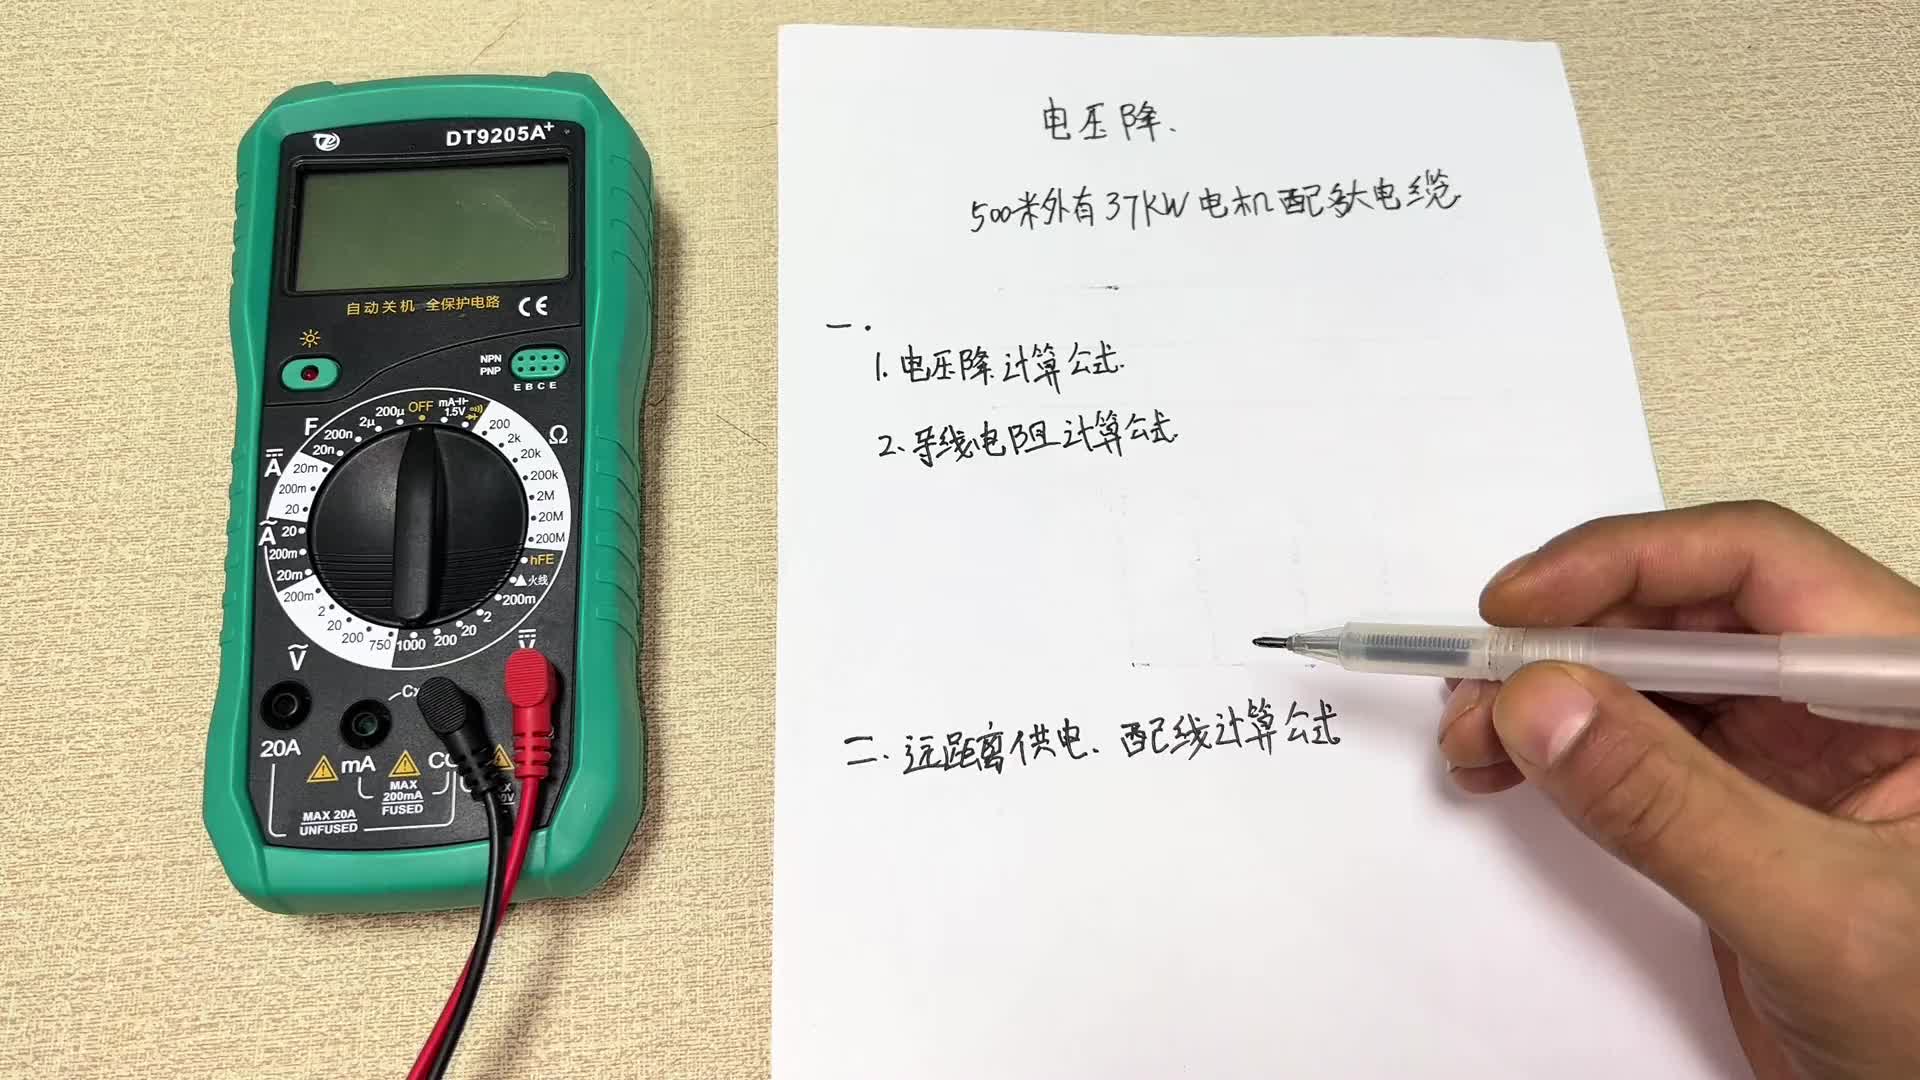 DT9205A+
自动关机 全保护电路 CE
NPN
PNP
E B C E
OFF
mA
1.5V
F
200μ
2μ
200n
20n
A
20m
200m
20
A
20
200m
20m
200m
2
20
200
750
V
200
2k
20k
200k
2M
20M
200M
Ω
hFE
火线
200m
2
20
200
1000
V
20A
mA
Cx
MAX
200mA
FUSED
MAX 20A
UNFUSED
电压降、
500米外有37KW电机配多大电缆
一.
1. 电压降计算公式.
2、导线电阻计算公式
二. 远距离供电、配线计算公式